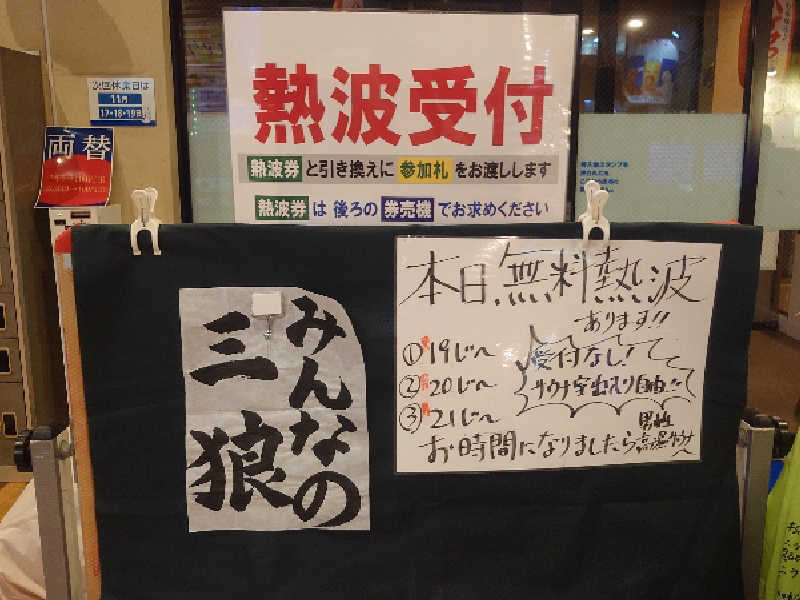 熱波受付
熱波券と引き換えに参加札をお渡しします
熱波券は後ろの券売機でお求めください
次回休業日は
11月
17•18•19日
両替
みんなの
三狼
本日、無料熱波
あります!!
①19じ〜
②20じ〜
③21じ〜
受付なし!
サウナ室出入り自由!!
お時間になりましたら
男性
高温サウナへ